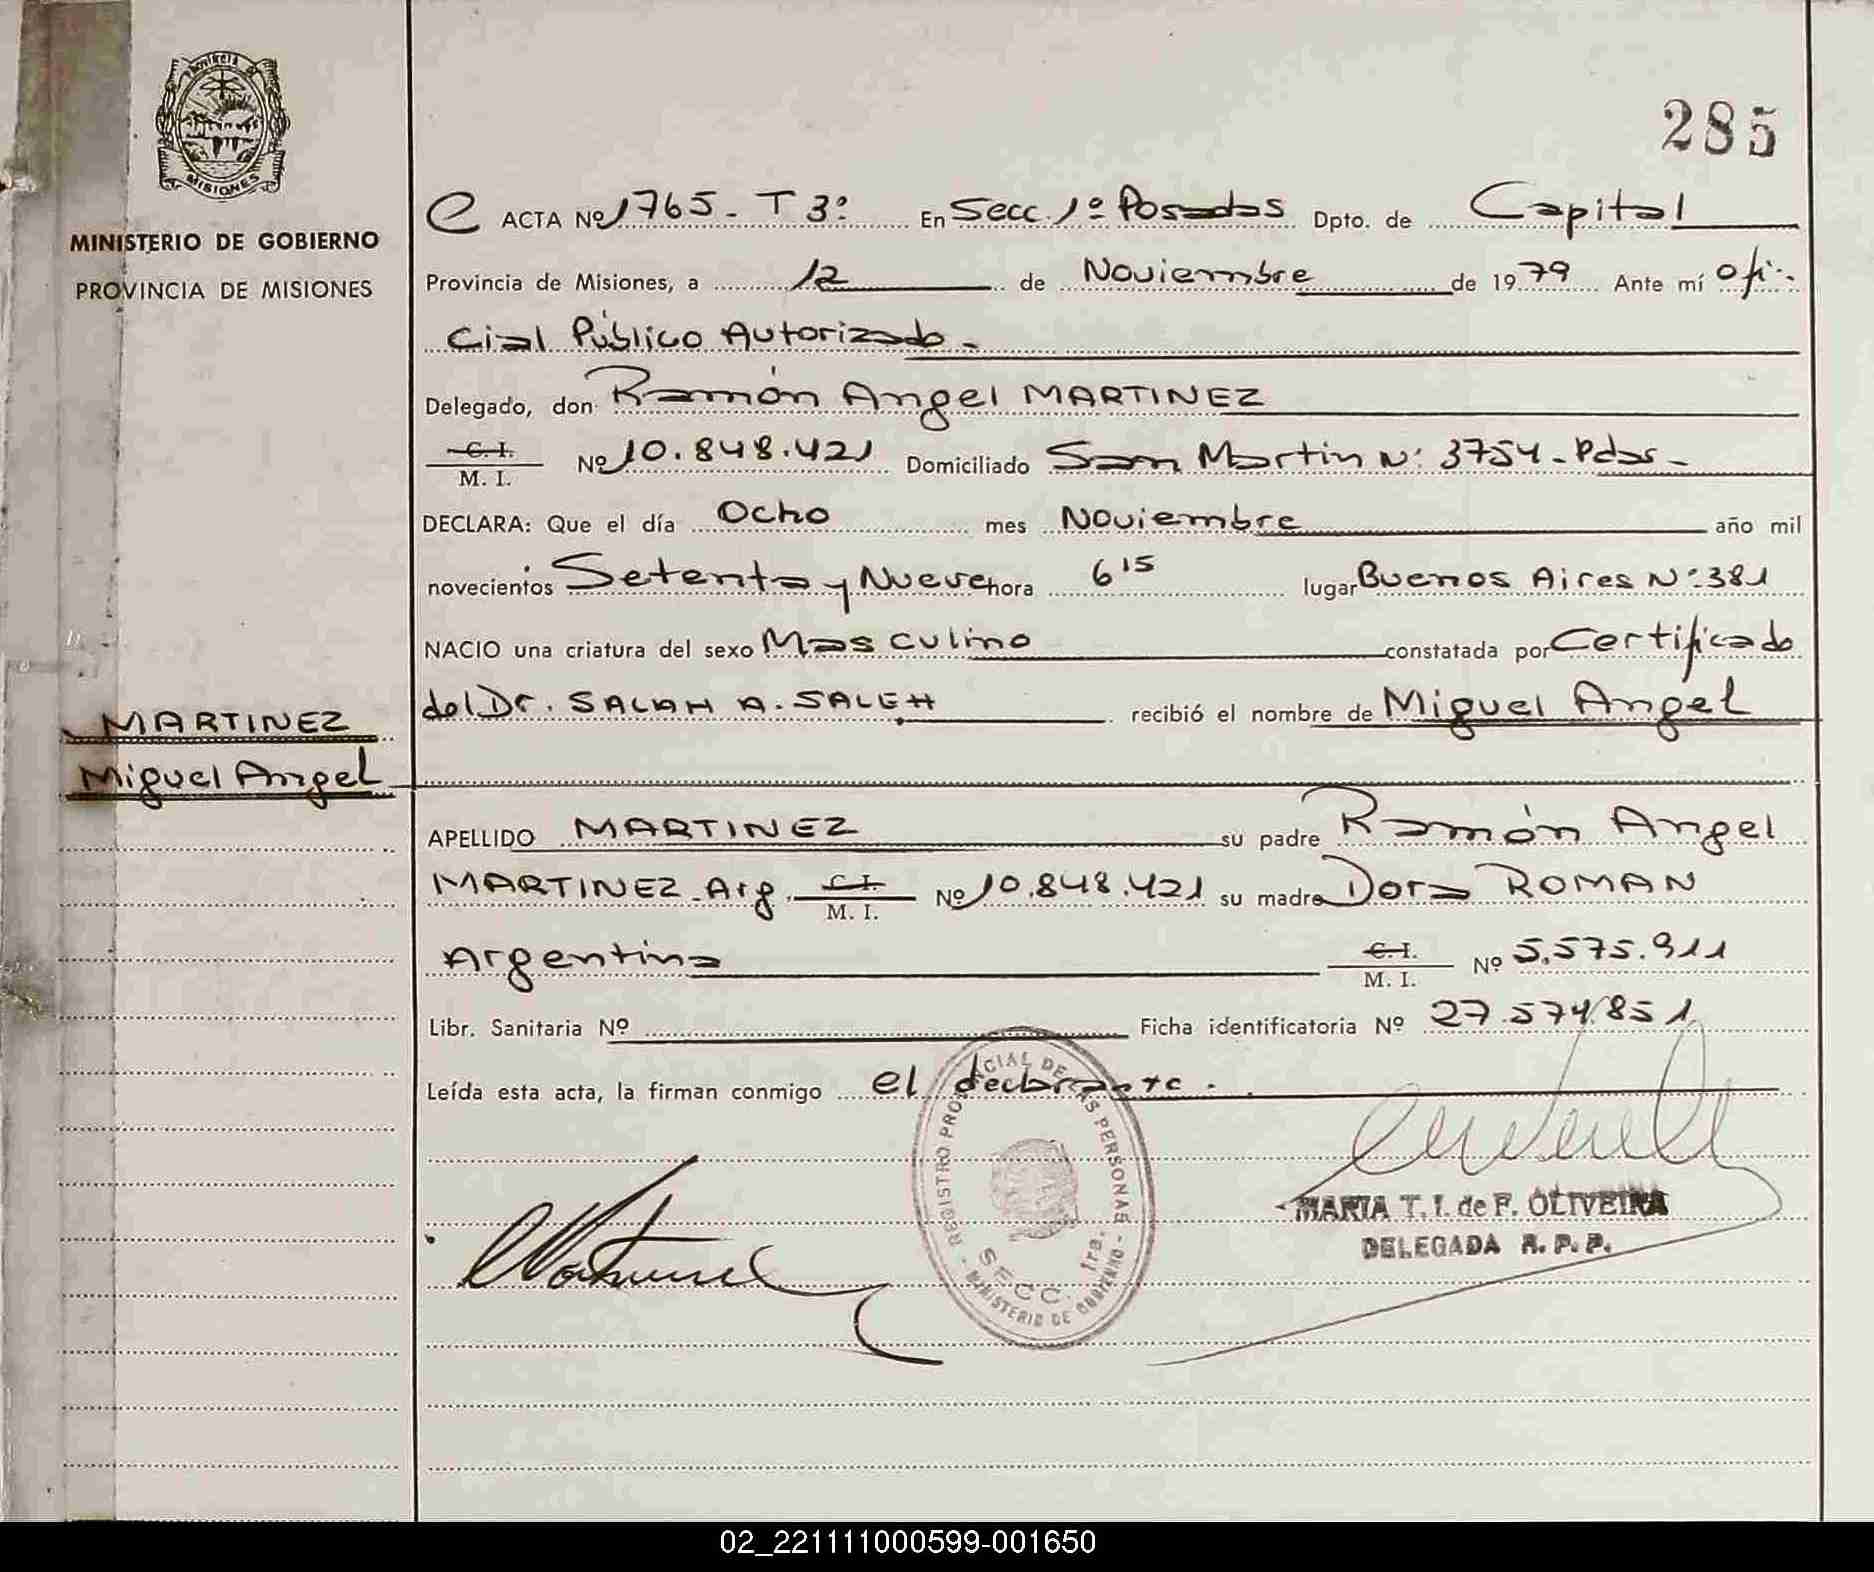 Provincia de
MISIONES
MINISTERIO DE GOBIERNO
PROVINCIA DE MISIONES
285
ACTA Nº 1765 - T 3º En Secc. 1º Posadas Dpto. de Capital
Provincia de Misiones, a 12 de Noviembre de 1979 Ante mí ofi-
cial Público Autorizado -
Delegado, don Ramón Angel MARTINEZ
C. I.
M. I. Nº 10.848.421 Domiciliado San Martin Nº 3754 - Pdas -
DECLARA: Que el día Ocho mes Noviembre año mil
novecientos Setenta y Nueve hora 6 15 lugar Buenos Aires Nº 381
NACIO una criatura del sexo Masculino constatada por Certificado
del Dr. SALAH A. SALEH recibió el nombre de Miguel Angel
MARTINEZ
Miguel Angel
APELLIDO MARTINEZ su padre Ramón Angel
MARTINEZ - Arg. C. I.
M. I. Nº 10.848.421 su madre Dora ROMAN
Argentina C. I.
M. I. Nº 5.575.911
Libr. Sanitaria Nº Ficha identificatoria Nº 27.574.851
Leída esta acta, la firman conmigo el declarante.
REGISTRO PROVINCIAL DE LAS PERSONAS
SECC. 1ra.
MINISTERIO DE GOBIERNO
MARIA T. I. de F. OLIVEIRA
DELEGADA R. P. P.
02_221111000599-001650